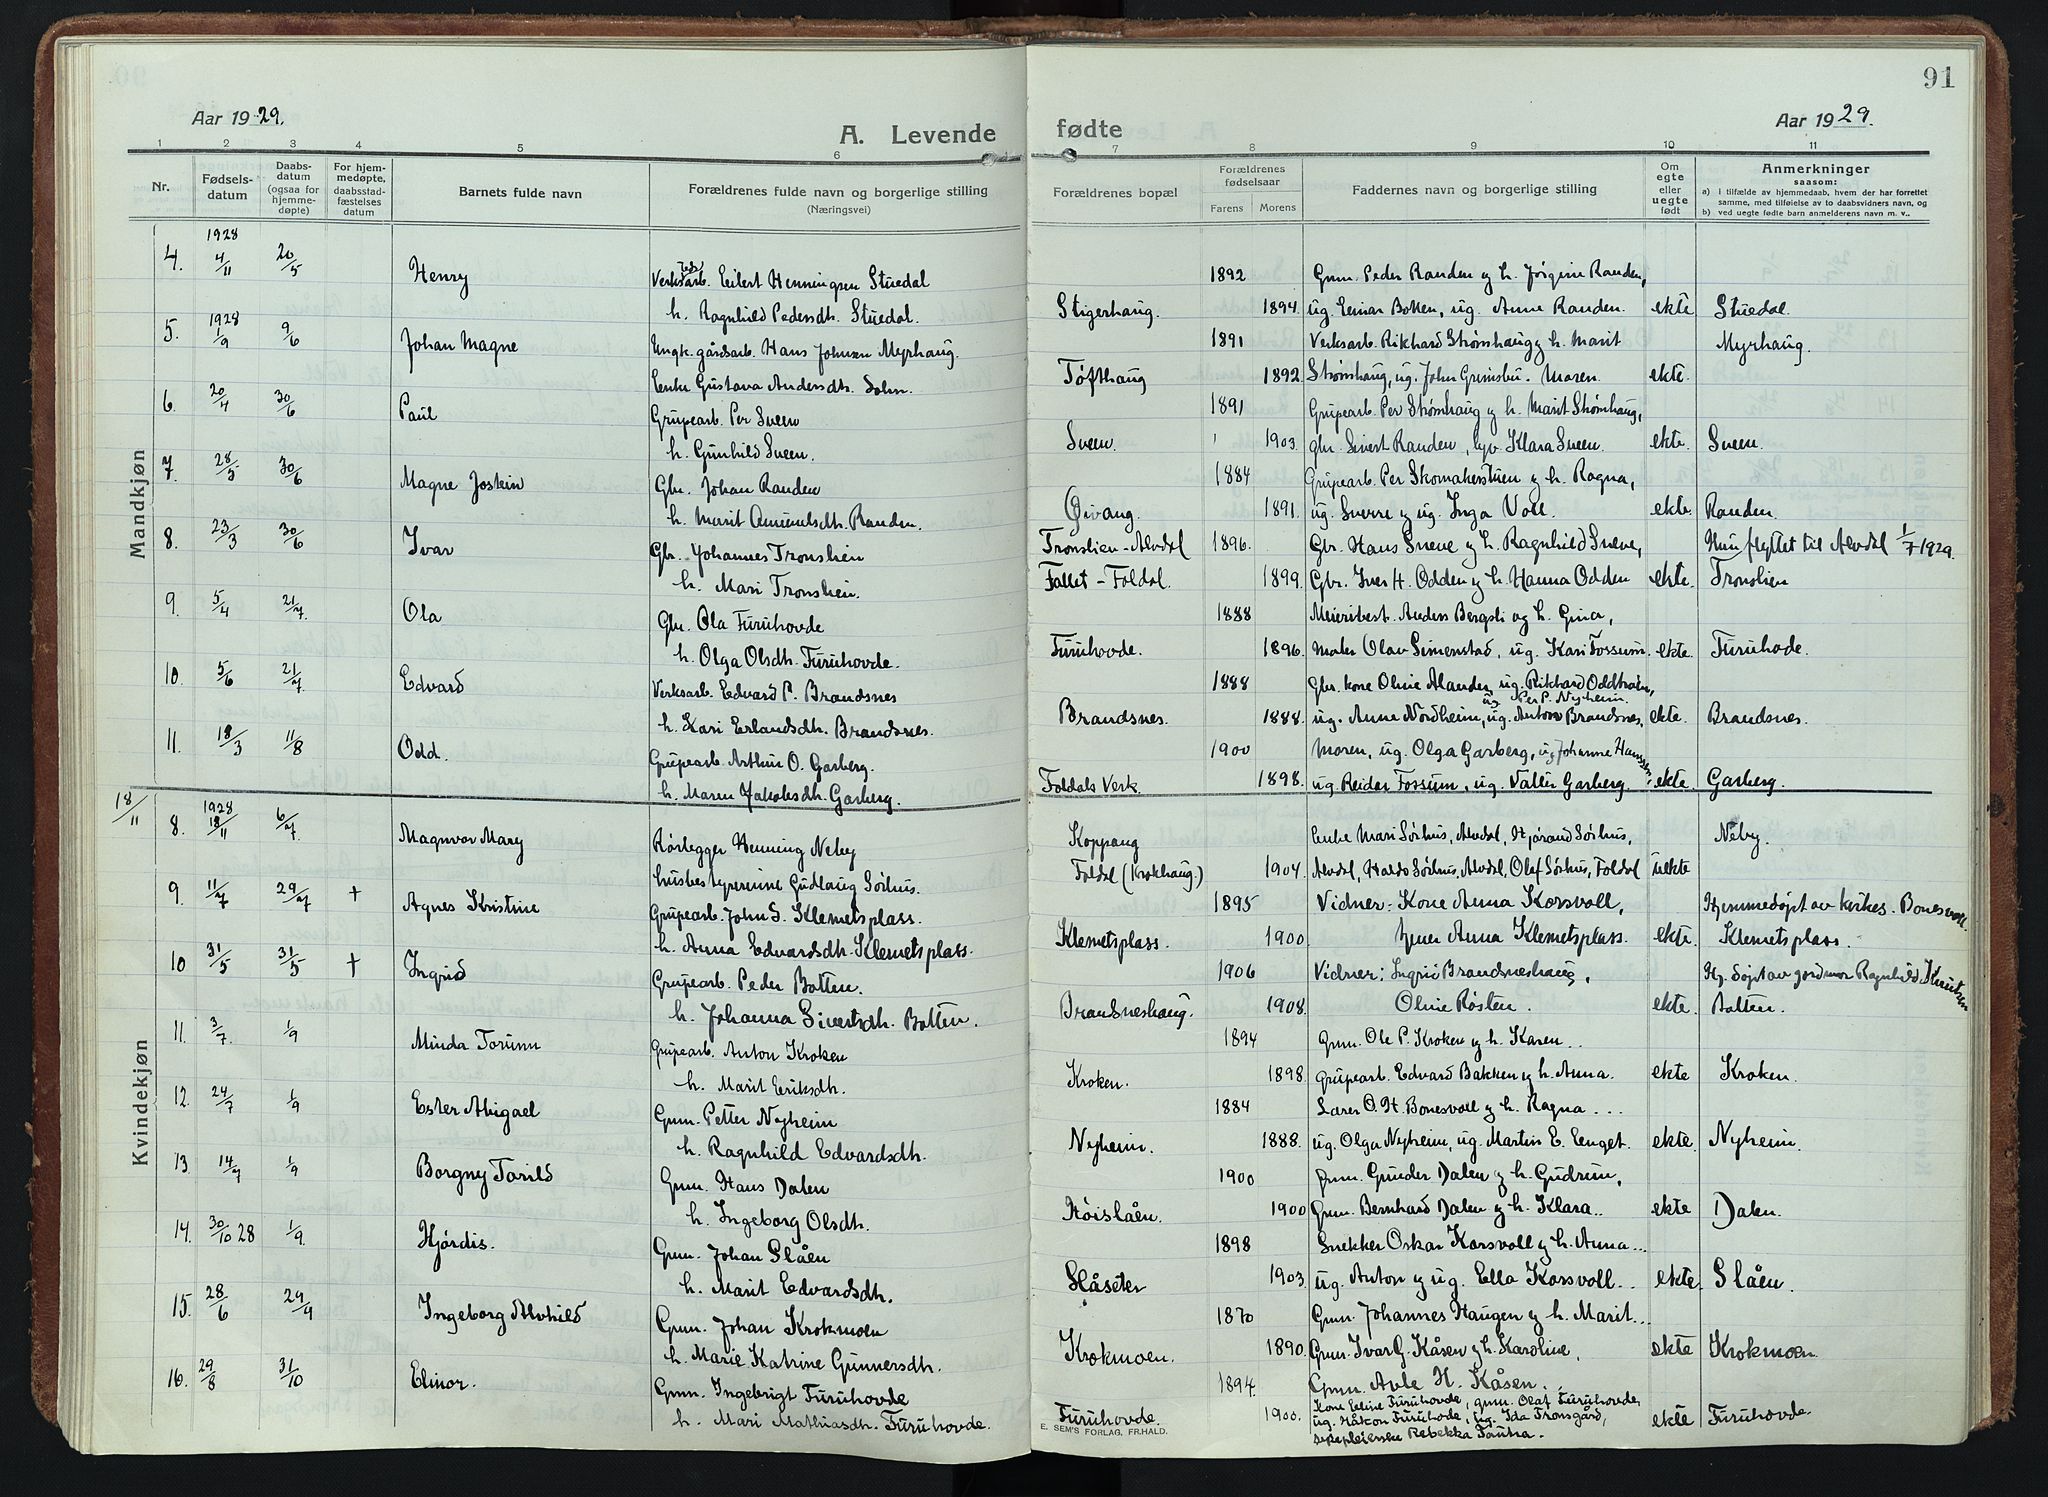 91
Aar 1929.
A. Levende
fødte
Aar 1929.
1 2 3 4 5 6 7 8 9 10 11
Nr.
Fødsels-
datum
Daabs-
datum
(ogsaa for
hjemme-
døpte)
For hjem-
medøpte,
daabsstad-
fæstelses
datum
Barnets fulde navn
Forældrenes fulde navn og borgerlige stilling
(Næringsvei)
Forældrenes bopæl
Forældrenes
fødselsaar
Farens Morens
Faddernes navn og borgerlige stilling
Om
egte
eller
uegte
født
Anmerkninger
saasom:
a) i tilfælde av hjemmedaab, hvem der har forrettet
samme, med tilføielse av to daabsvidners navn, og
b) ved uegte fødte barn anmelderens navn m. v..
Mandkjøn
4. 1928 4/11 20/5 Henry Verksarb. Eilert Henningsen Stuedal 1892 Gmn. Peder Randen og h. Jørgine Randen,
h. Ragnhild Pedersdh. Stuedal. Stigerhaug. 1894. ug. Einar Botten, ug. Anne Randen. ekte Stuedal.
5. 1928 1/9 9/6 Johan Magne Ungk. gårdsarb. Hans Johnsen Myrhaug. 1891 Verksarb. Rikhard Strømhaug og h. Marit Myrhaug.
Enke Gustava Andersdh. Tøfthaug 1892. Strømhaug, ug. John Grimsbu. Moren. ekte.
6. 20/4 30/6 Paul Grupearb. Per Sveen 1891 Grupearb. Per Strømhaug og h. Marit Strømhaug,
h. Gunhild Sveen. Sveen. 1903. gbr. Sivert Randen, Klara Sveen. ekte. Sveen.
7. 28/5 30/6 Magne Jostein Gbr. Johan Randen 1884 Grupearb. Per Skomakerstuen og h. Ragna,
h. Marit Amundsdh. Randen. Øivang. 1891. ug. Sverre og ug. Inga Voll. ekte. Randen.
8. 23/3 30/6 Ivar Gbr. Johannes Tronslien Tronslien - Alvdal 1896. Gbr. Hans Sneve og h. Ragnhild Sneve, Hun flyttet til Alvdal 1/7 1929.
h. Mari Tronslien. Fallet - Foldal. 1899. Gbr. Iver H. Odden og h. Hanna Odden ekte. Tronslien
9. 5/4 21/7. Ola Gbr. Ola Furuhovde 1888 Meieribest. Anders Bergsli og h. Gina,
h. Olga Olsdh. Furuhovde. Furuhovde. 1896. Maler Olav Simenstad, ug. Kari Fossum. ekte. Furuhode.
10. 5/6 21/7. Edvard Verksarb. Edvard P. Brandsnes 1888 Gbr. kone Oline Alander, ug. Rikhard Oddtrøen,
ug Per P. Nyheim.
h. Kari Erlandsdh. Brandsnes. Brandsnes. 1888. ug. Anne Nordheim, ug. Anton Brandsnes, ekte. Brandsnes.
11. 18/3 11/8 Odd. Grupearb. Arthur O. Garberg. 1900 Moren, ug. Olga Garberg, ug Johanne Hanssen,
h. Maren Jakobsdh. Garberg. Foldals Verk. 1898. ug. Reidar Fossum, ug. Valter Garberg. ekte. Garberg.
Kvindekjøn
18/11 8. 1928 18/11 6/7. Magnvor Mary Rørlegger Henning Neby Koppang Enke Mari Sørhus, Alvdal, Hjørand Sørhus, Neby.
husbestyrerinne Gudlaug Sørhus. Foldal (Krokhaug.) 1904. Alvdal, Haldo Sørhus, Alvdal, Olaf Sørhus, Foldal uekte
9. 11/7 29/7 + Agnes Kristine Grupearb. John S. Klemetsplass. 1895 Vidner: Kone Anna Korsvoll, Hjemmedøpt av kirkes. Bonesvoll.
h. Anna Edvardsdh. Klemetsplass. Klemetsplass. 1900 Anna Klemetsplass. ekte. Klemetsplass.
10 31/5 31/5 + Ingrid Grupearb. Peder Botten. 1906 Vidner: Ingrid Brandsneshaug, Hj. døpt av jordmor Ragnhild Knutsen
h. Johanna Sivertsdh. Botten. Brandsneshaug. 1908. Oline Røsten. ekte. Botten.
11. 3/7. 1/9 Minda Torunn Grupearb. Anton Kroken 1894 Gmn. Ole P. Kroken og h. Karen..
h. Marit Eriksdh. Kroken. 1898. Grupearb. Edvard Bakken og h. Anna. ekte Kroken.
12. 24/7 1/9 Ester Abigael Gmn. Petter Nyheim 1884 Lærer O. H. Bonesvoll og h. Ragna ...
h. Ragnhild Edvardsdh. Nyheim. 1888. ug. Olga Nyheim, ug. Martin E. Enget. ekte. Nyheim.
13. 14/7 1/9 Borgny Torild Gmn. Hans Dalen 1900 Gmn. Gunder Dalen og h. Gudrun,
h. Ingeborg Olsdh. Høislåen. 1900 Gmn. Bernhard Dalen og h. Klara.. ekte Dalen.
14. 30/10 28 1/9. Hjørdis. Gmn. Johan Slåen 1898 Snekker Oskar Korsvoll og h. Anna...
h. Marit Edvardsdh. Slåseter 1903. ug. Anton og ug. Ella Korsvoll.. ekte. Slåen.
15. 28/6 29/9 Ingeborg Alvhild Gmn. Johan Krokmoen 1870 Gmn. Johannes Haugen og h. Marit...
h. Marie Katrine Gunnersdh. Krokmoen. 1890. Gmn. Ivar G. Kåsen og h. Karoline, ekte Krokmoen.
16. 29/8 31/10 Elinor. Gmn. Ingebrigt Furuhovde 1894 Gmn. Avle H. Kåsen.
h. Mari Mathiasdh. Furuhovde. Furuhovde. 1900. Kone Eline Furuhovde, gmn. Olaf Furuhovde, ekte Furuhovde.
ug. Håkon Furuhode, ug. Ida Tronsgård,
sykepleierske Rebekka Tautra.
E. SEM'S FORLAG, FR.HALD.